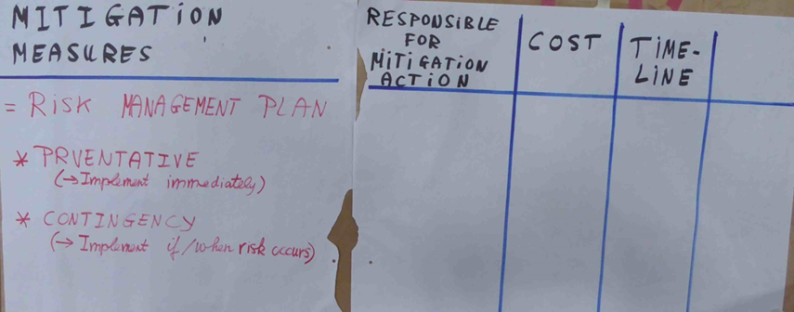 MITIGATION
MEASURES
= RISK MANAGEMENT PLAN
* PRVENTATIVE
(→ Implement immediately)
* CONTINGENCY
(→ Implement if/when risk occurs)
RESPONSIBLE
FOR
MITIGATION
ACTION
COST
TIME-
LINE